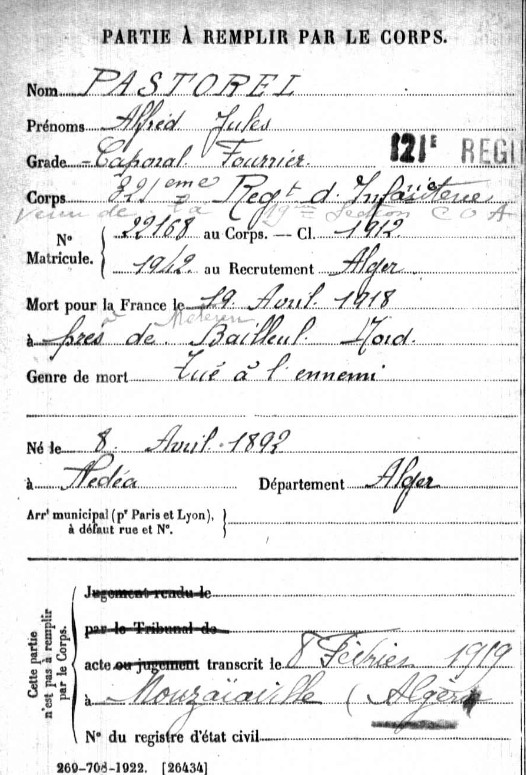 PARTIE À REMPLIR PAR LE CORPS.
Nom PASTOREL
Prénoms Alfred Jules
Grade Caporal Fourrier
121E REGI
Corps 321eme Regt d'Infanterie
venu de la 19e Section C O A
N° Matricule. 22168 au Corps. — Cl. 1912
1942 au Recrutement Alger
Mort pour la France le 19 Avril 1918
à Meteren
à près de Bailleul Nord.
Genre de mort Tué à l'ennemi
Né le 8 Avril 1892
à Médéa Département Alger
Arrt municipal (pr Paris et Lyon), à défaut rue et N°.
Cette partie n'est pas à remplir par le Corps.
Jugement rendu le
par le Tribunal de
acte ou jugement transcrit le 8 Février 1919
à Mouzaïaville (Algérie
N° du registre d'état civil
269-708-1922. [26434]